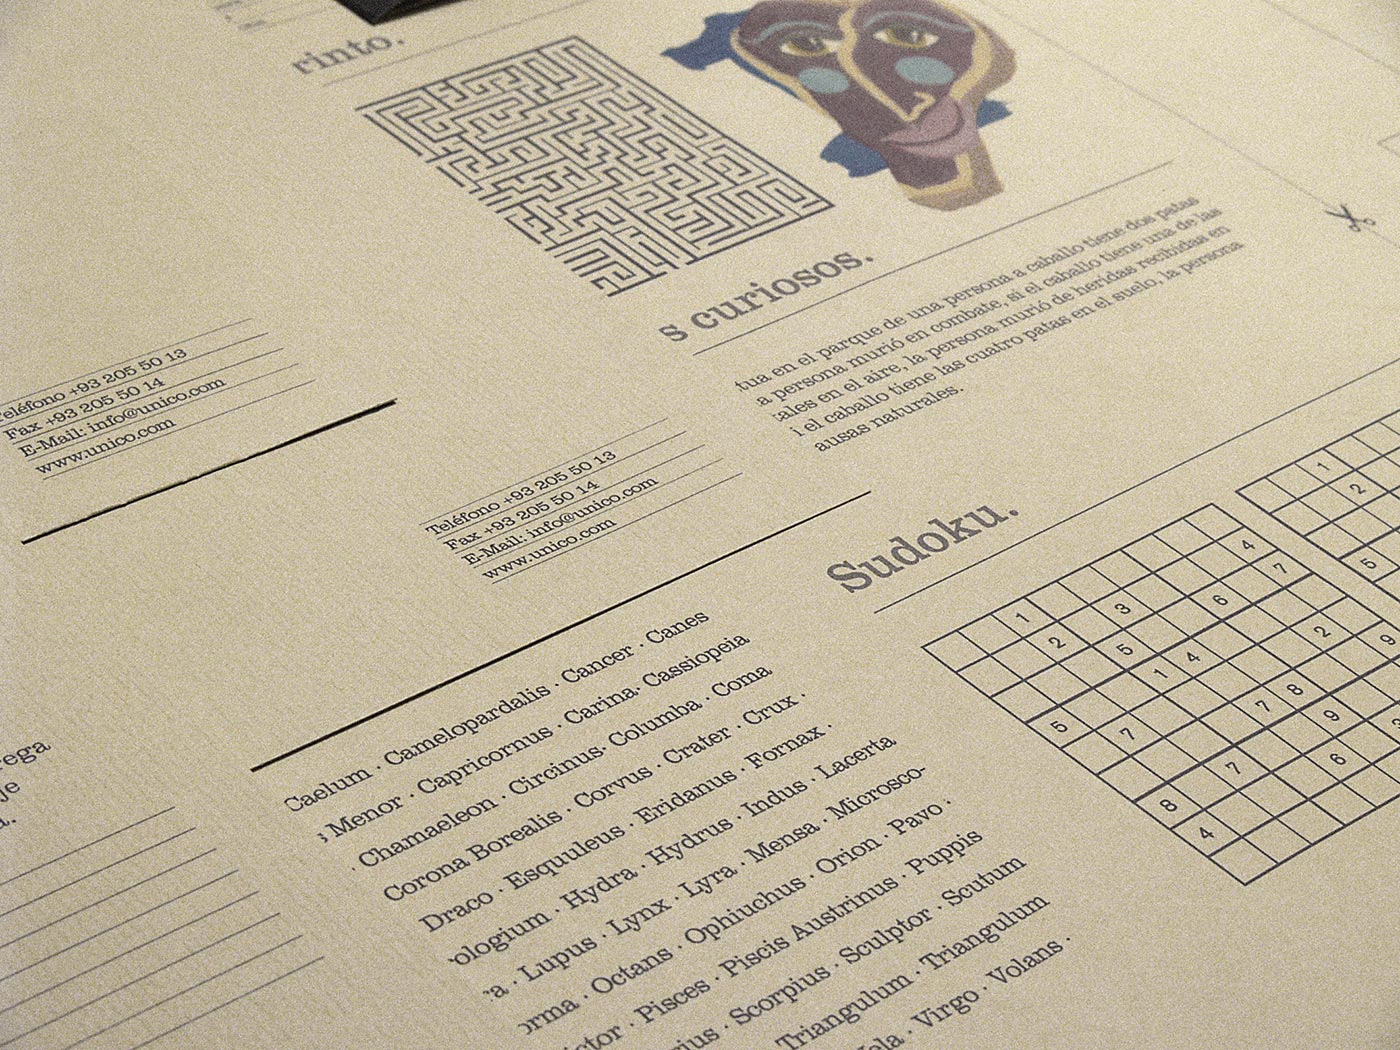 rinto.
s curiosos.
tua en el parque de una persona a caballo tiene dos patas
a persona murió en combate, si el caballo tiene una de las
tales en el aire, la persona murió de heridas recibidas en
i el caballo tiene las cuatro patas en el suelo, la persona
ausas naturales.
Teléfono +93 205 50 13
Fax +93 205 50 14
E-Mail: info@unico.com
www.unico.com
Teléfono +93 205 50 13
Fax +93 205 50 14
E-Mail: info@unico.com
www.unico.com
Sudoku.
1 4
2 3 7
5 6
1 4 2 9
5 7 7 8
7 9
8 6
4
1
2
5
Caelum · Camelopardalis · Cancer · Canes
s Menor · Capricornus · Carina· Cassiopeia
· Chamaeleon · Circinus· Columba · Coma
Corona Borealis · Corvus · Crater · Crux ·
Draco · Esquuleus · Eridanus · Fornax ·
ologium · Hydra · Hydrus · Indus · Lacerta
a · Lupus · Lynx · Lyra · Mensa · Microsco-
orma · Octans · Ophiuchus · Orion · Pavo ·
ictor · Pisces · Piscis Austrinus · Puppis
rius · Scorpius · Sculptor · Scutum
Triangulum · Triangulum
Vela · Virgo · Volans ·
rega
je
a.